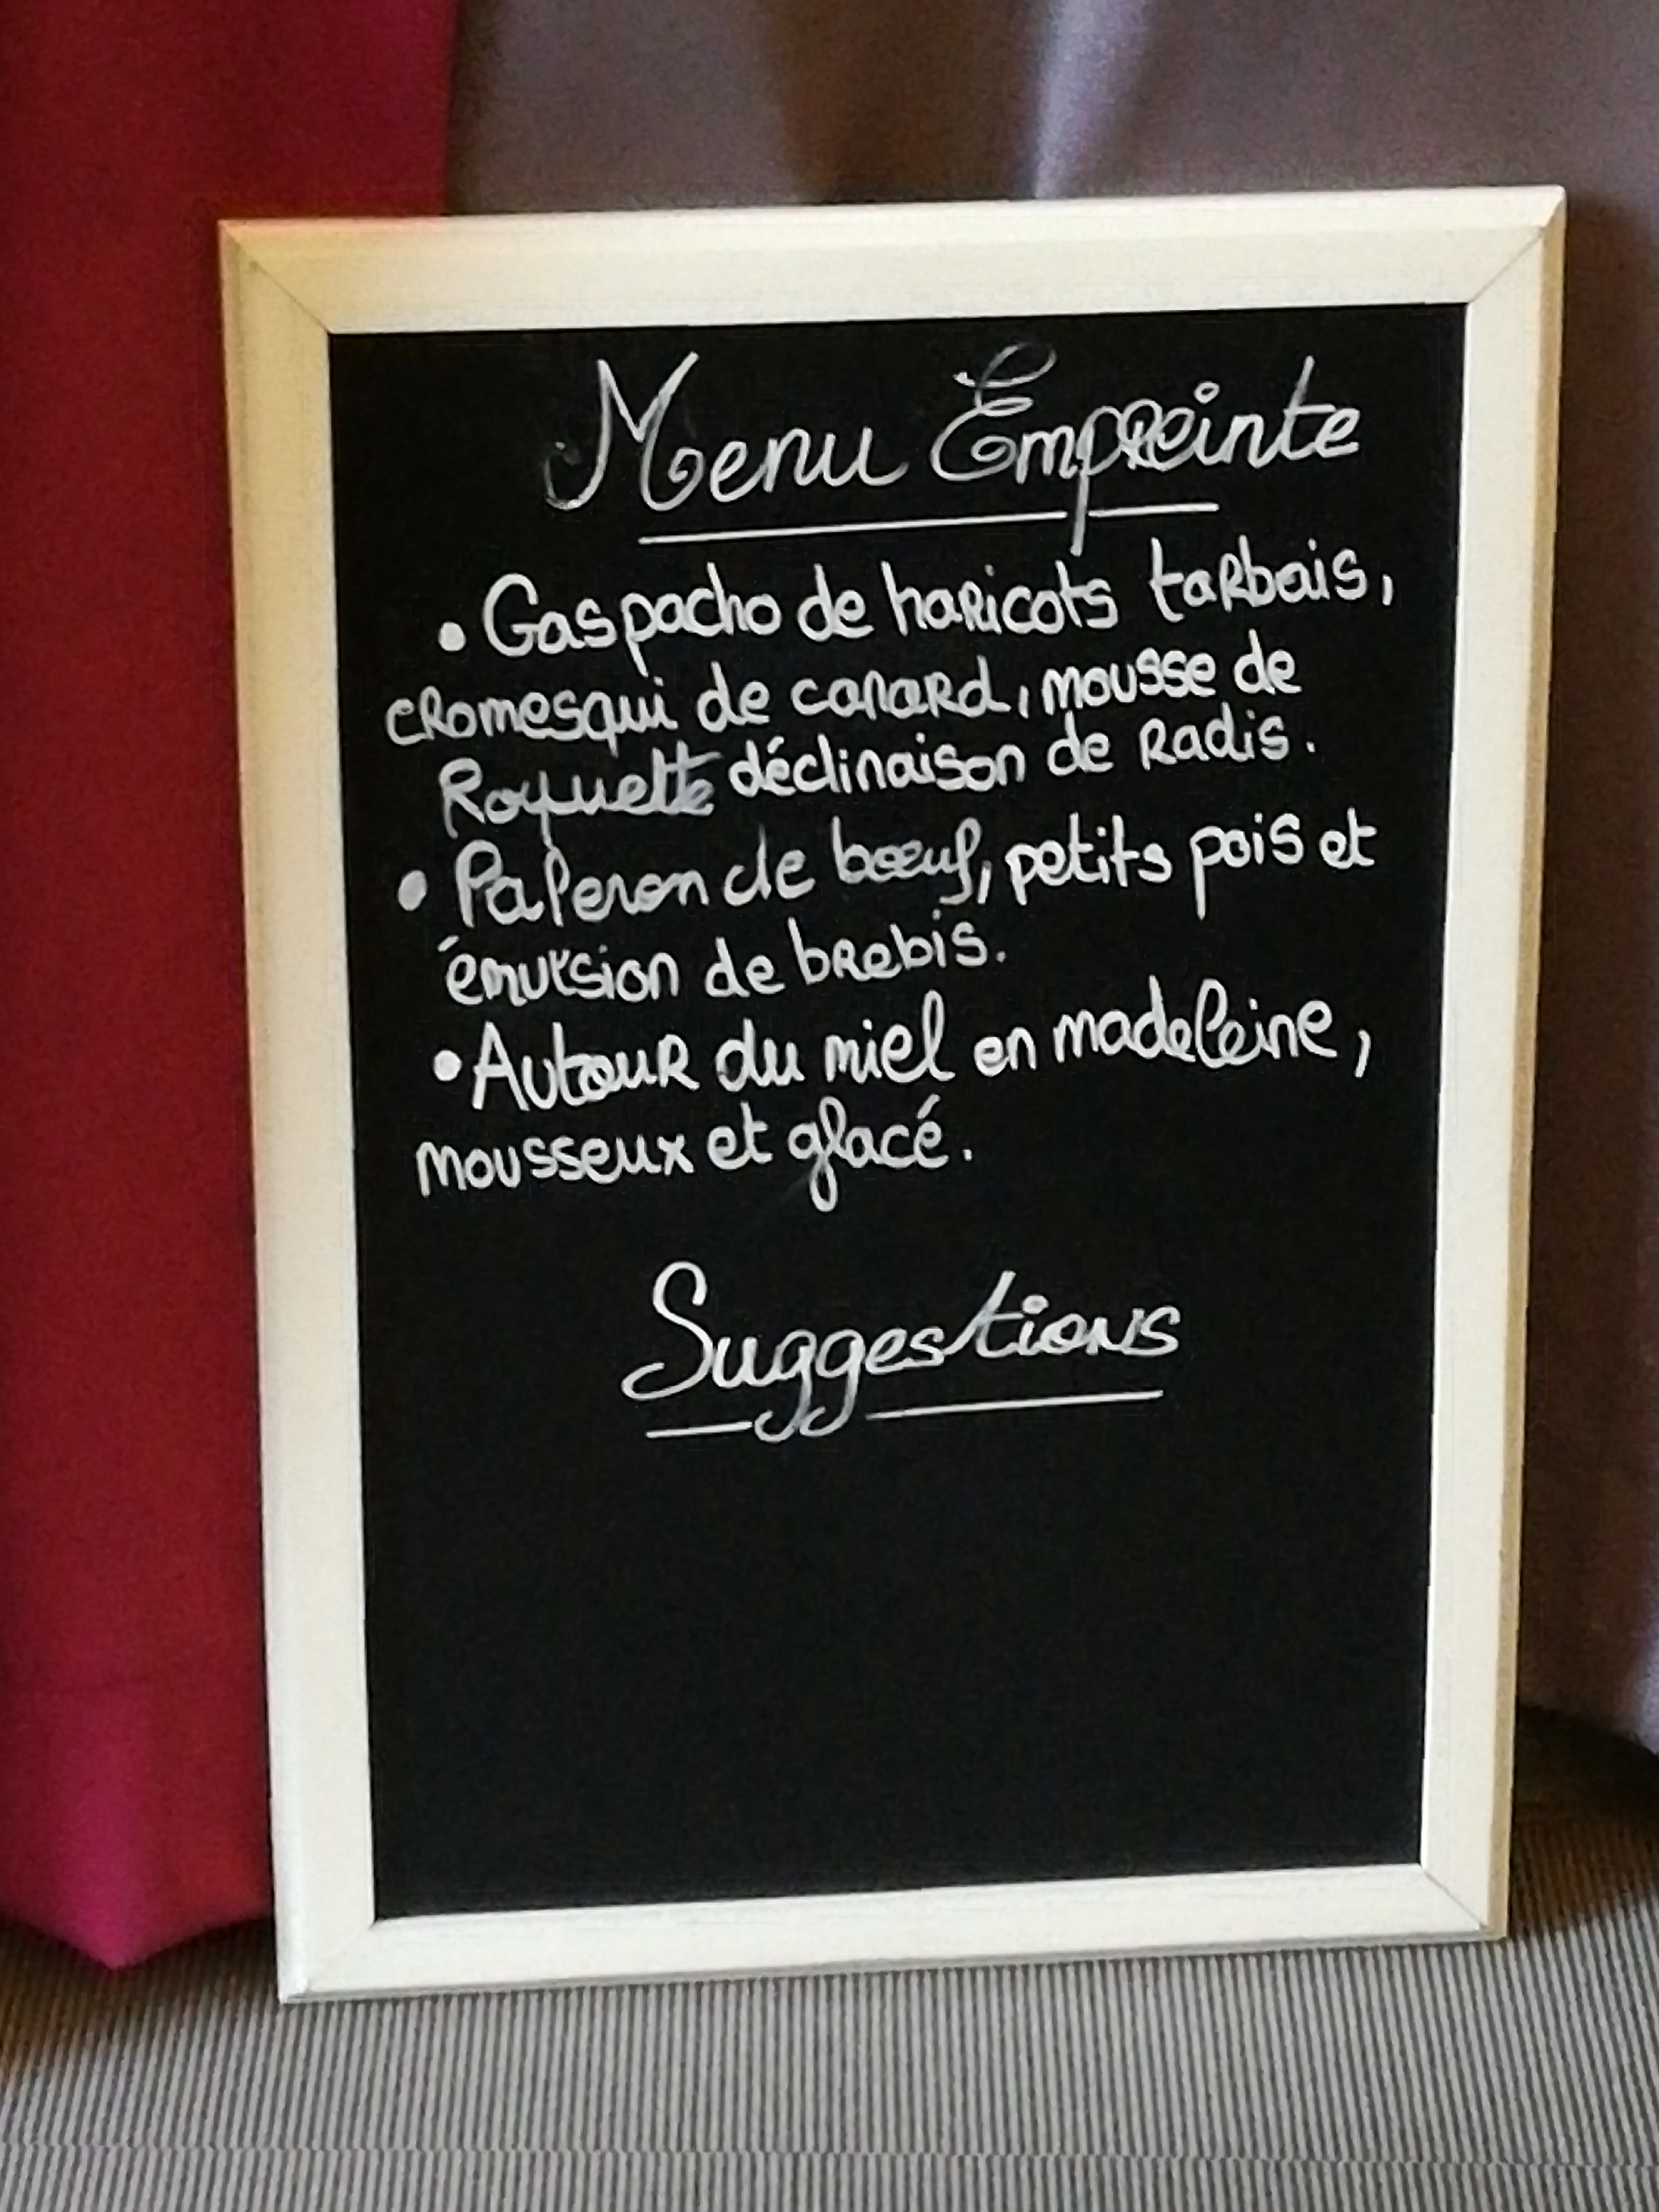 Menu Empreinte
• Gaspacho de haricots tarbais,
cromesqui de canard, mousse de
Roquette déclinaison de Radis.
• Paleron de bœuf, petits pois et
émulsion de brebis.
• Autour du miel en madeleine,
mousseux et glacé.
Suggestions